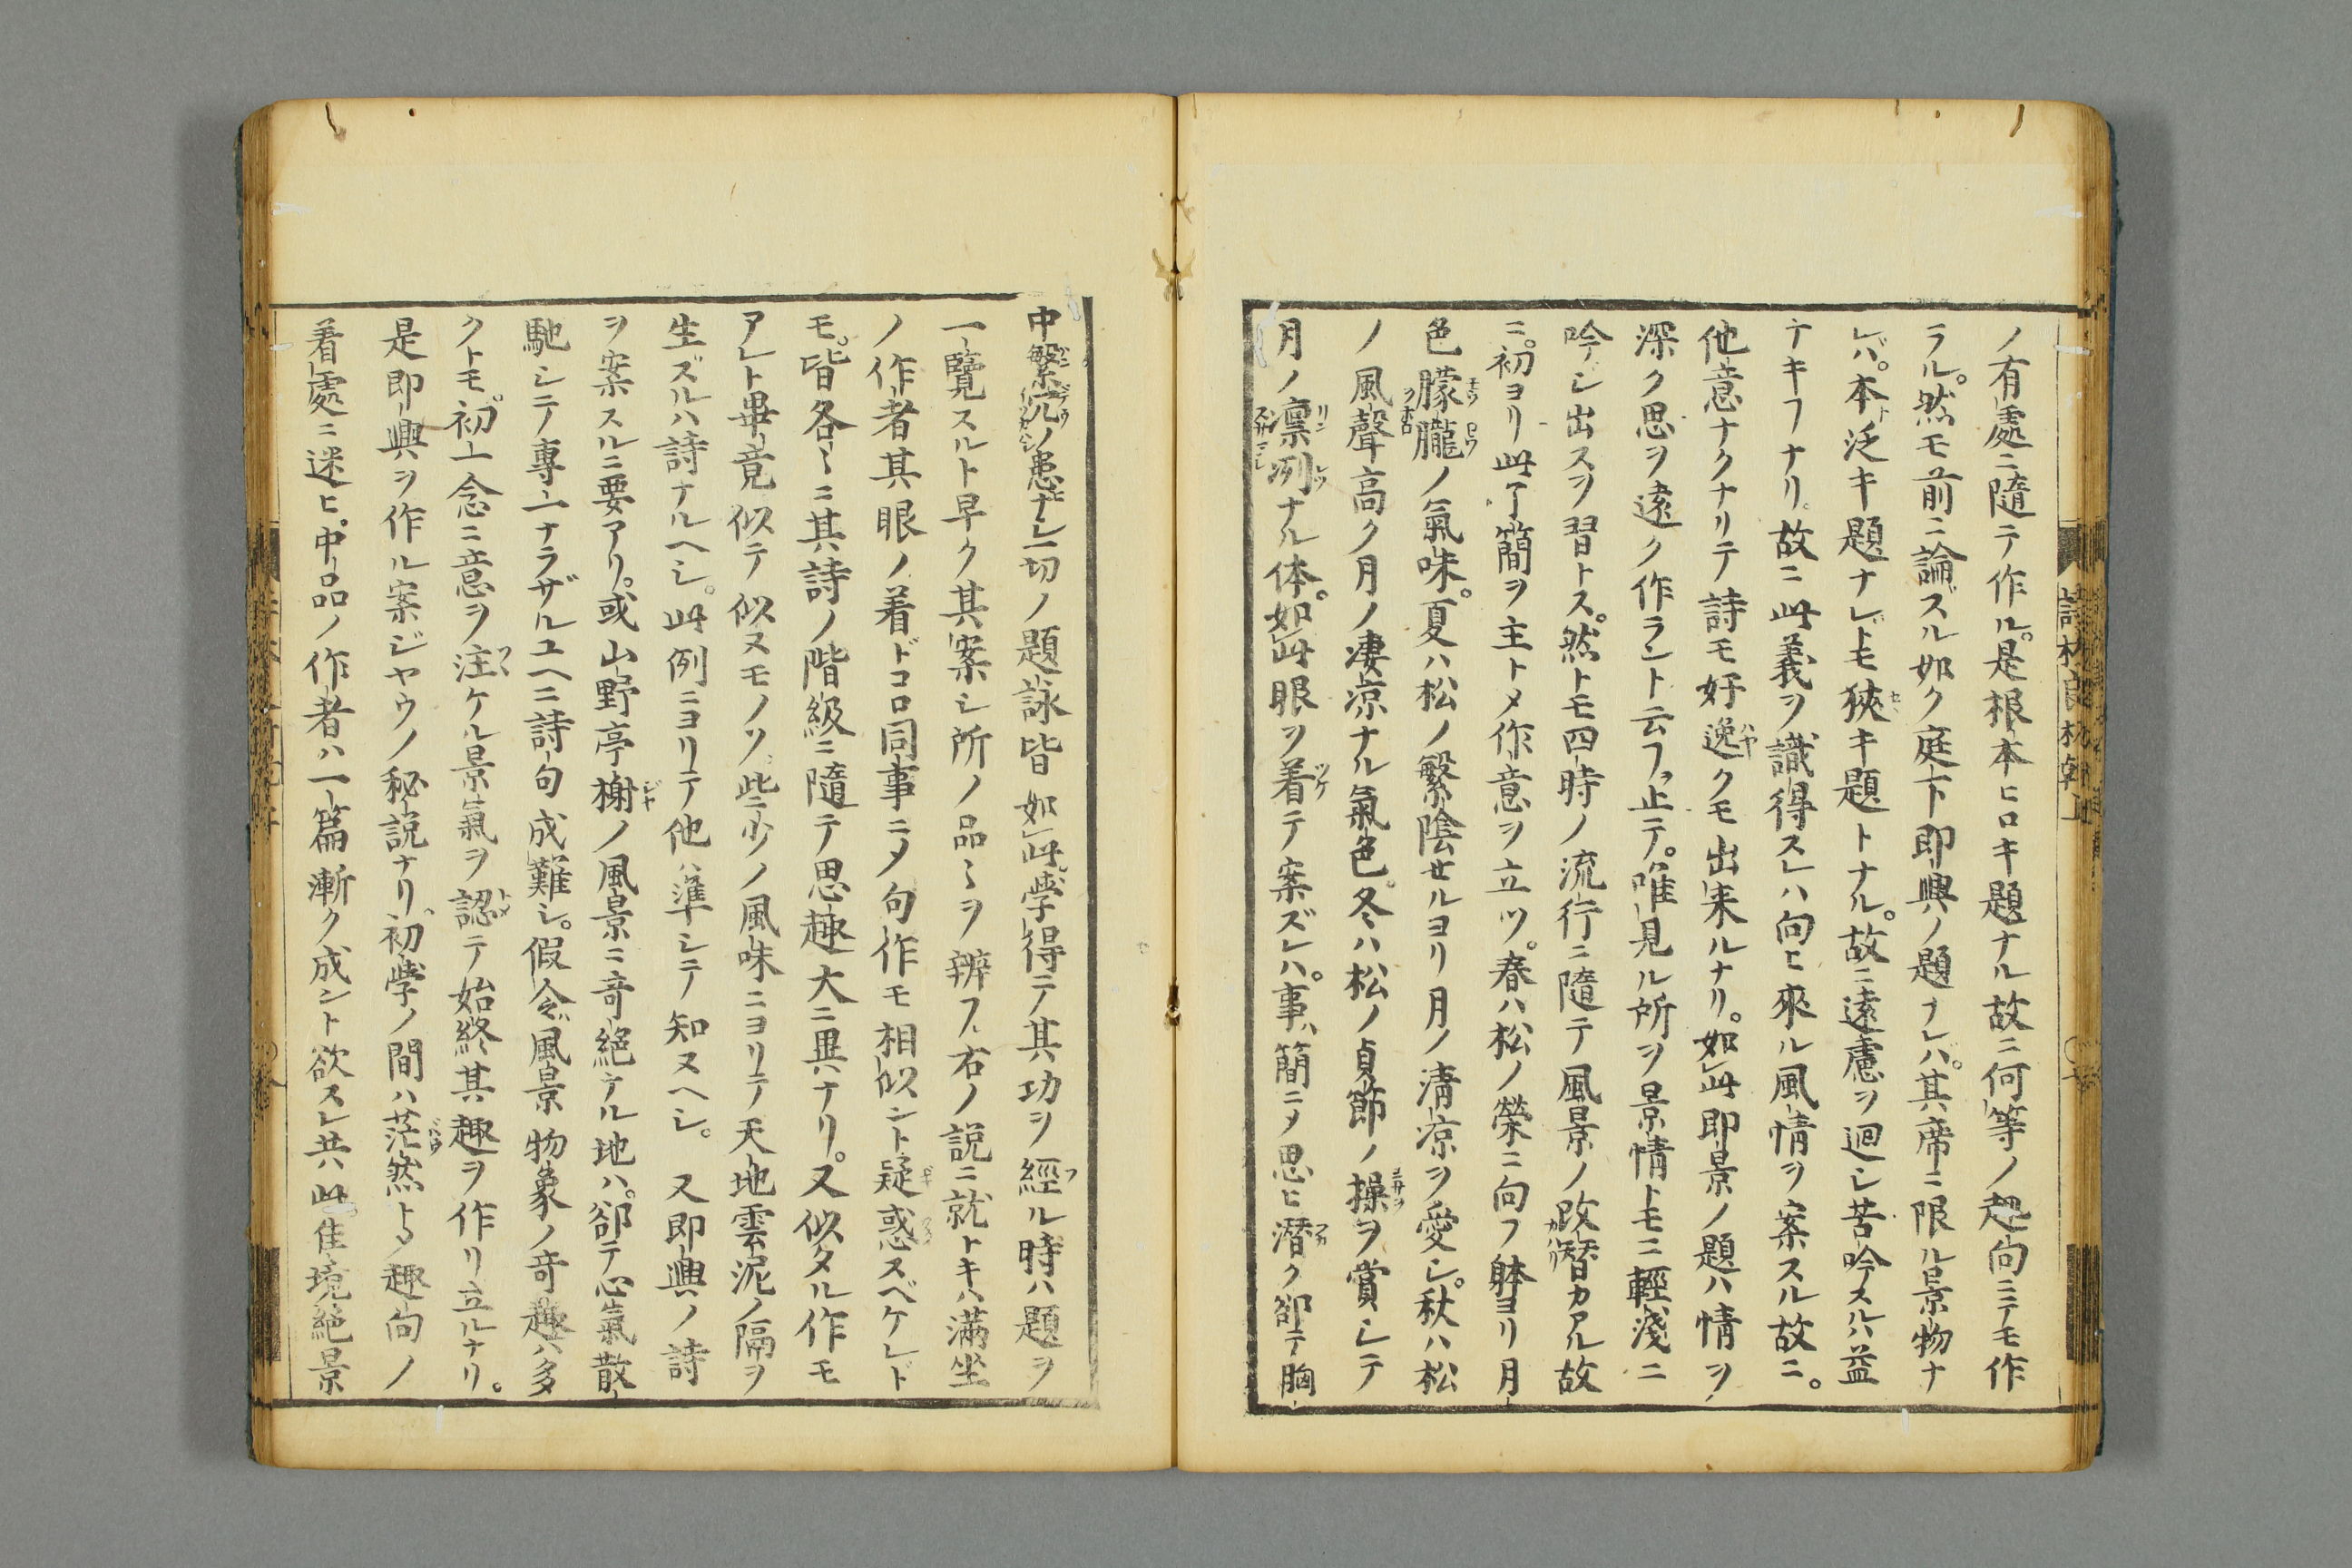 ノ有處ニ隨テ作ル。是根本ヒロキ題ナル故ニ何等ノ趣向ミテモ作
ラル。然モ前ニ論ズル如ク庭下即興ノ題ナレバ。其席ニ限ル景物ナ
レバ。本ト泛キ題ナレドモ狹キ題トナル。故ニ遠慮ヲ迴シ苦吟スルハ益
テキフナリ。故ニ此義ヲ識得スレハ向ヒ來ル風情ヲ案スル故ニ。
他意ナクナリテ詩モ好逸クモ出来ルナリ。如此即景ノ題ハ情ヲ
深ク思ヲ遠ク作ラント云フヿ止テ。唯見ル所ヲ景情トモニ輕淺ニ
吟シ出スヲ習トス。然トモ四時ノ流行ニ隨テ風景ノ改替カアル故
ニ。初ヨリ此了簡ヲ主トメ作意ヲ立ツ。春ハ松ノ榮ニ向フ躰ヨリ月
色朦朧ノ氣味。夏ハ松ノ繁陰セルヨリ月ノ淸凉ヲ愛シ。秋ハ松
ノ風聲高ク月ノ凄凉ナル氣色。冬ハ松ノ貞節ノ操ヲ賞シテ
月ノ凛冽ナル体。如此眼ヲ着テ案ズレハ。事ハ簡ニメ思ヒ潜ク卻テ胸
中繁冗ノ患ナシ一切ノ題詠皆如此学得テ其功ヲ經ル時ハ題ヲ
一覽スルト早ク其案シ所ノ品〻ヲ辨フ右ノ説ニ就トキハ満坐
ノ作者其眼ノ着ドコロ同事ニメ句作モ相似ント疑惑スベケレド
モ。皆各〻ニ其詩ノ階級ニ隨テ思趣大ニ異ナリ。又似タル作モ
アレト畢竟似テ似ヌモノソ些少ノ風味ニヨリテ天地雲泥ノ隔ヲ
生ズルハ詩ナルヘシ。此例ニヨリテ他ハ準シテ知ヌヘシ。又即興ノ詩
ヲ案スルニ要アリ。或山野亭榭ノ風景ニ竒絶ナル地ハ。卻テ心氣散
馳シテ專一ナラザルユヘニ詩句成難シ。假令風景物象ノ竒趣ハ多
クトモ。初一念ニ意ヲ注ケル景氣ヲ認テ始終其趣ヲ作リ立ルナリ。
是即興ヲ作ル案ジヤウノ秘説ナリ。初学ノ間ハ茫然トメ趣向ノ
着處ニ迷ヒ。中品ノ作者ハ一篇漸ク成ント欲スレ共此佳境絶景